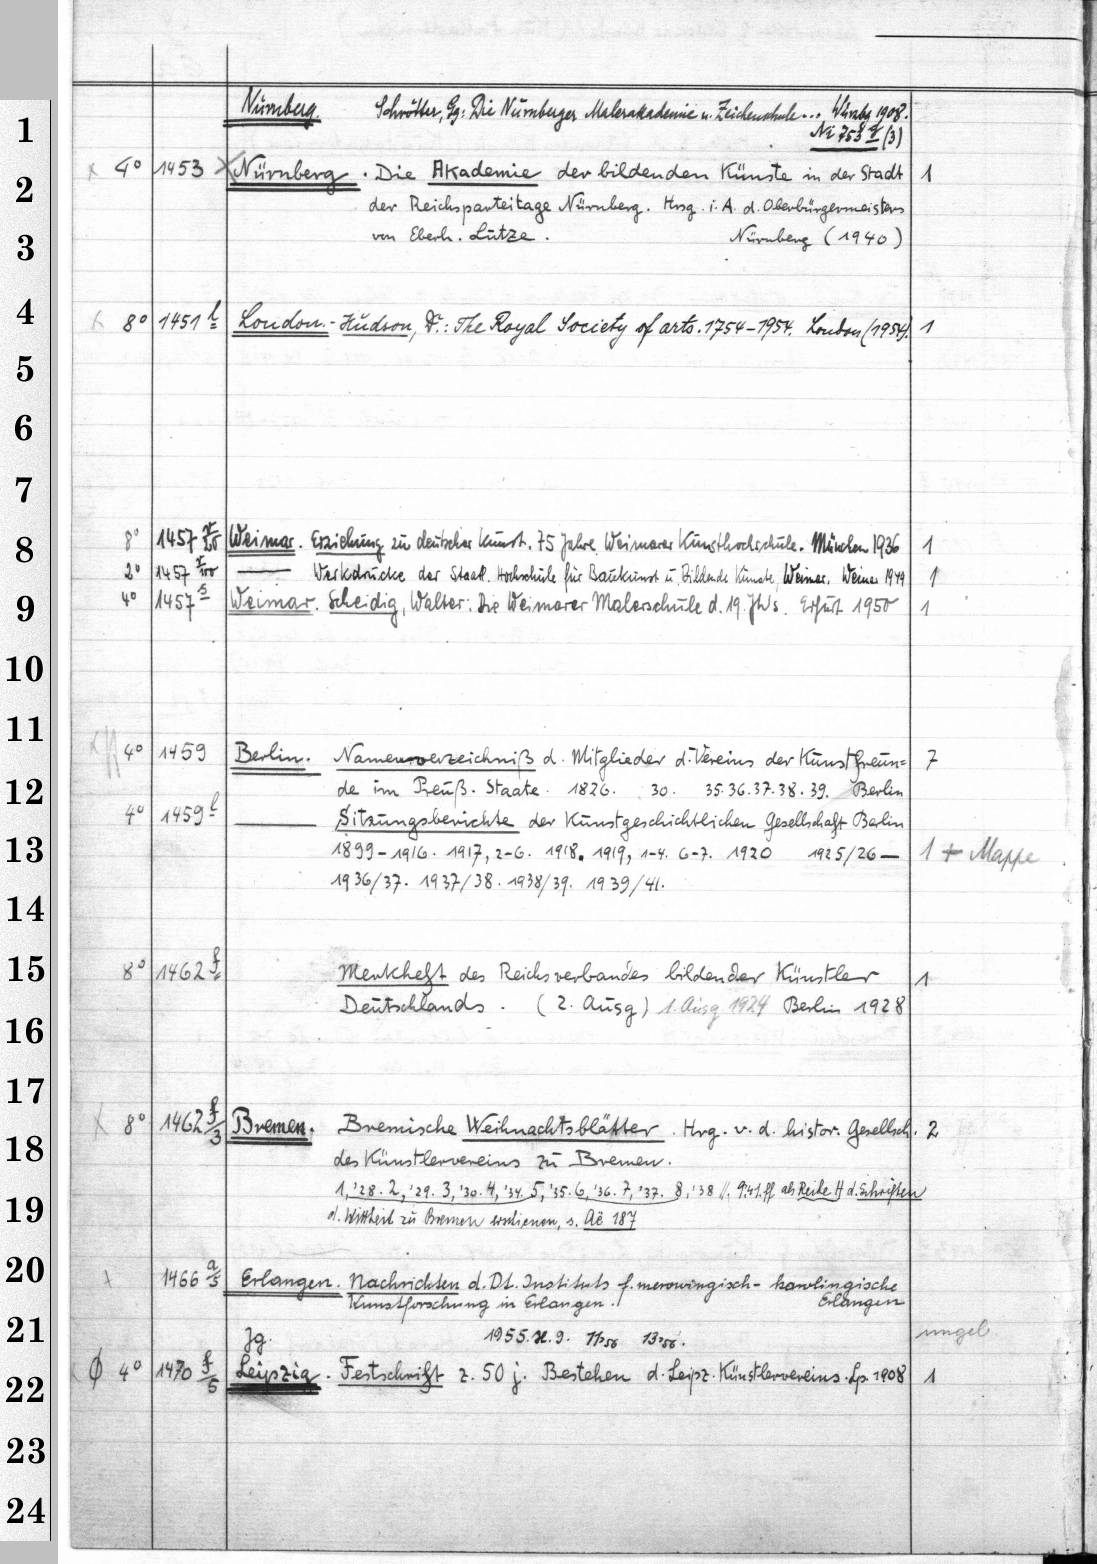 1 Nürnberg. Schrötter, Gg: Die Nürnberger Malerakademie u. Zeichenschule... Würzbg 1908.
(3)
2 4° 1453 Nürnberg. Die Akademie der bildenden Künste in der Stadt 1
der Reichsparteitage Nürnberg. Hrsg. i. A. d. Oberbürgermeisters
3 von Eberh. Lutze. Nürnberg (1940)
4 8° 1451 l London.- Hudson, D.: The Royal Society of arts. 1754-1954. London (1954). 1
5
6
7
8 8° 1457 Weimar. Erziehung zu deutscher Kunst. 75 Jahre Weimarer Kunsthochschule. München 1936 1
2° 1457 —— Werkdrucke der Staatl. Hochschule für Baukunst u. Bildende Künste, Weimar. Weimar 1949 1
9 4° 1457 s Weimar. Scheidig, Walter: Die Weimarer Malerschule d. 19. Jh's. Erfurt 1950 1
10
11
4° 1459 Berlin. Namenverzeichniß d. Mitglieder d. Vereins der Kunstfreun= 7
12 de im Preuß. Staate. 1826. 30. 35.36.37.38.39. Berlin
4° 1459 l —— Sitzungsberichte der Kunstgeschichtlichen Gesellschaft Berlin
13 1899-1916. 1917, 2-6. 1918. 1919, 1-4. 6-7. 1920 1925/26— 1 + Mappe
1936/37. 1937/38. 1938/39. 1939/41.
14
15 8° 1462 f Merkheft des Reichsverbandes bildender Künstler 1
Deutschlands. (2. Ausg) 1. Ausg 1924 Berlin 1928
16
17
8° 1462 f/3 Bremen. Bremische Weihnachtsblätter. Hrg. v. d. histor. Gesellsch. 2
18 des Künstlervereins zu Bremen.
1, '28. 2, '29. 3, '30. 4, '34. 5, '35. 6, '36. 7, '37. 8, '38 //. 9'41.ff als Reihe H d. Schriften
19 d. Wittheit zu Bremen erschienen, s. Aë 187
20 1466 a/5 Erlangen. Nachrichten d. Dt. Instituts f. merowingisch- karolingische
Kunstforschung in Erlangen. Erlangen
21 Jg. 1955. 9. 11.56 13.56. ungeb
22 Ø 4° 1470 f/5 Leipzig. Festschrift z. 50 j. Bestehen d. Leipz. Künstlervereins. Lp. 1908 1
23
24